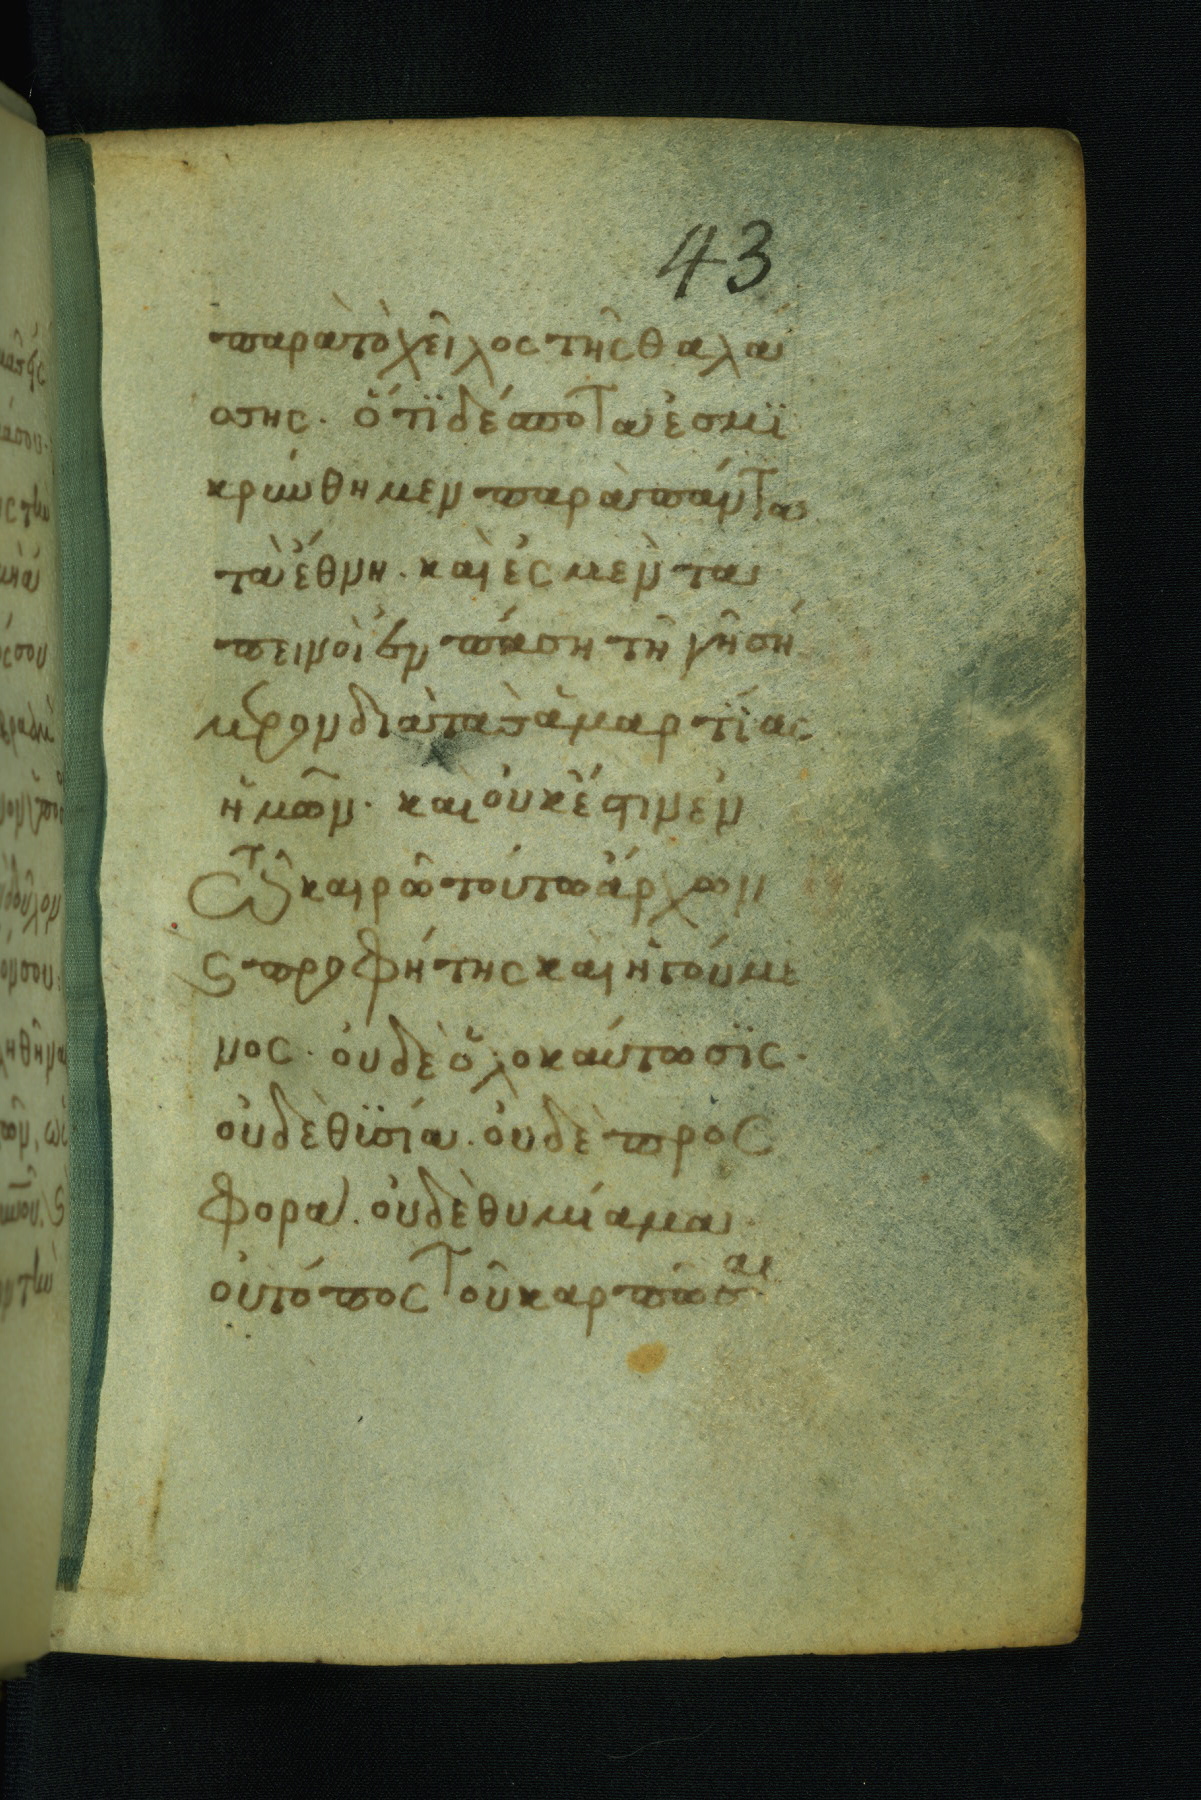 43
παρὰ τὸ χεῖλος τῆς θαλα
σης. ὅτϊ δέσποτα ἐσμϊ
κρύνθημεν παρὰ πάντα
τὰ ἔθνη. καὶ ἐσμεν τα
πεινοὶ ἐν πάση τῆ γῆ σή
μερον διὰ τὰς ἁμαρτίας
ἡμῶν. καὶ οὐκ ἔστιν ἐν
τῶ καιρῶ τούτω ἄρχων
ς προφήτης καὶ ἡγούμε
νος. οὐδὲ ὁλοκαύτωσϊς.
οὐδὲ θϋσία. οὐδὲ προς
φορα. οὐδὲ θυμίαμα.
οὐ τόπος τοῦ καρπῶσαι